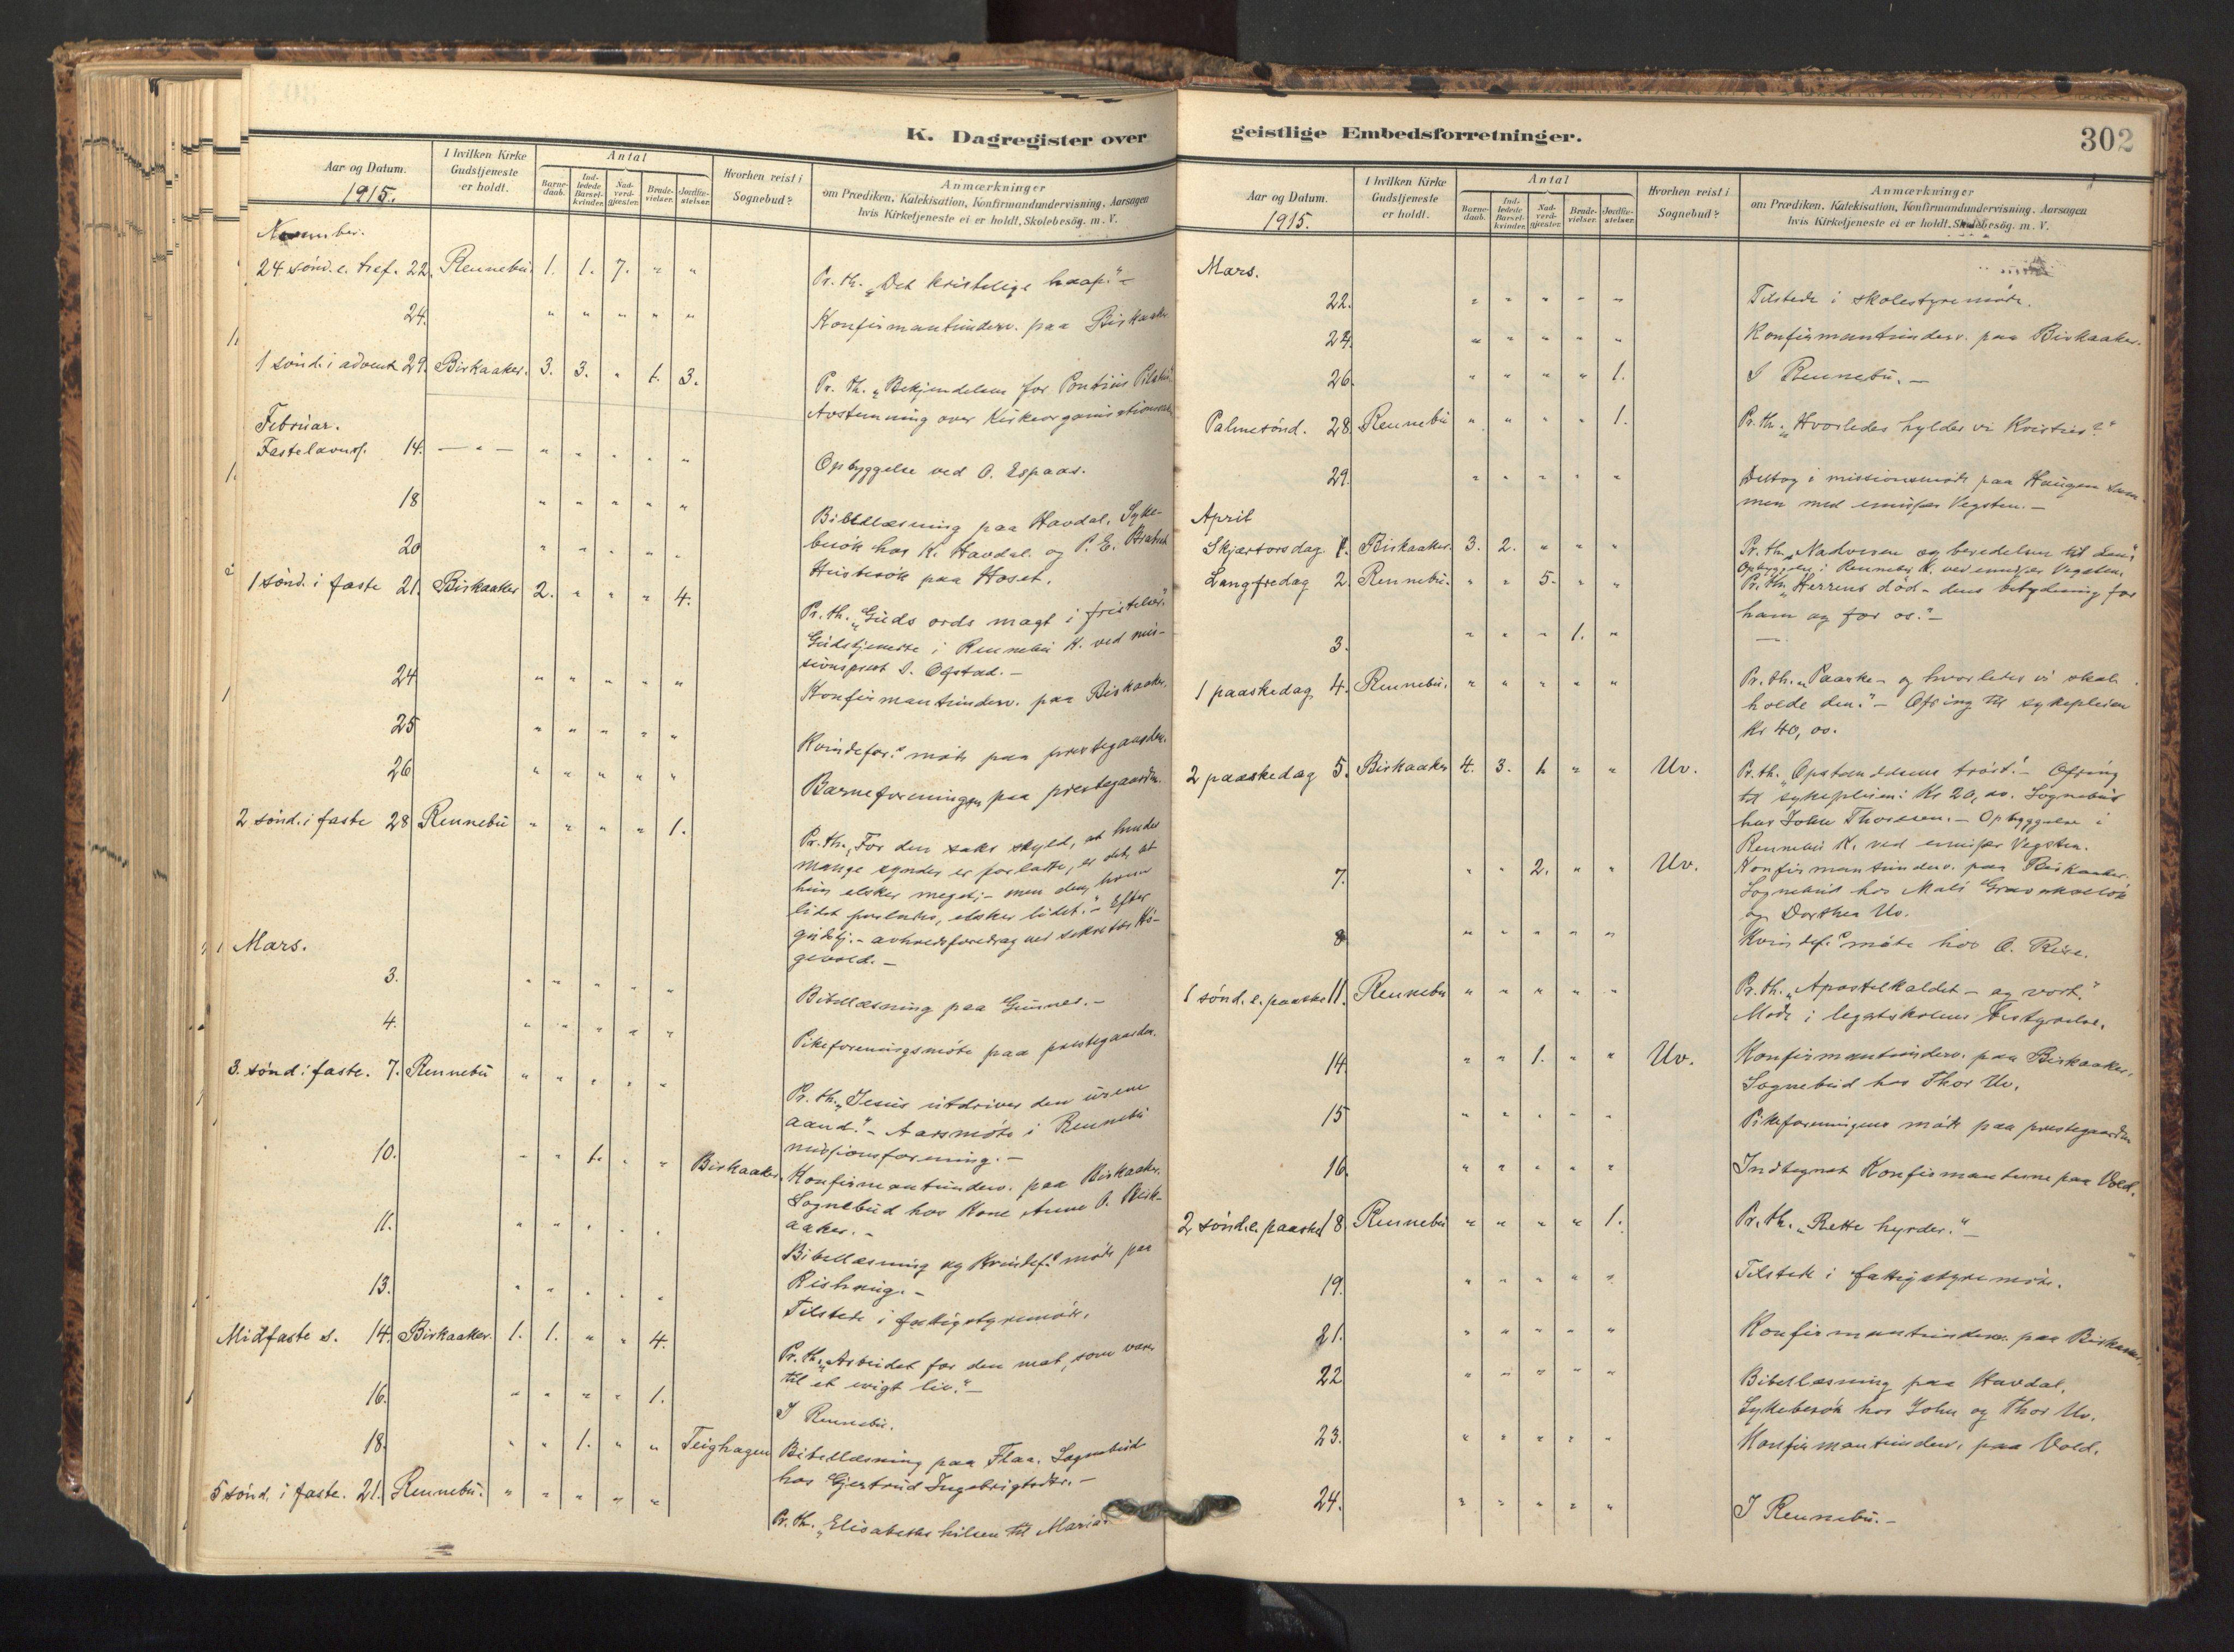 K. Dagregister over
Aar og Datum.
1915.
I hvilken Kirke
Gudstjeneste
er holdt.
Antal
Barne-
daab.
Ind-
ledede
Barsel-
kvinder.
Nad-
verd-
gjester.
Brude-
vielser.
Jordfæ-
stelser.
Hvorhen reist i
Sognebud?
Anmærkninger
om Prædiken, Katekisation, Konfirmandundervisning. Aarsagen
hvis Kirketjeneste ei er holdt, Skolebesøg. m. V.
November.
24 sönd. e. tref. 22. Rennebu. 1. 1. 7. " " Pr. th. "Det kristelige haap." –
24. " " " " " Konfirmantunderv. paa Birkaaker
1 sönd. i advent 29. Birkaaker. 3. 3. " 1. 3. Pr. th. "Bekjendelsen for Pontius Pilatus"
Avstemning over
Februar.
Fastelavns. 14. — " — " " " " " Opbyggelse ved O. Espaas.
18 " " " " " Bibellæsning paa Havdal. Syke-
besök hos K. Havdal. og P. E.
20 " " " " " Husbesök paa Hoset.
1 sönd. i faste 21. Birkaaker 2. " " " 4. Pr. th. "Guds ords magt i fristelser."
Gudstjeneste i Rennebu K. ved mis-
sionsprest S. Ofstad. –
24 " " " " " Konfirmantunderv. paa Birkaaker.
25 " " " " " Kvindefor.s möte paa prestegaarden.
26 " " " " " Barneforeningen paa prestegaarden.
2 sönd. i faste 28 Rennebu " " " " 1. Pr. th. "For den saks skyld, at hendes
mange synder er forlatte, er det, at
hun elsker meget; – men den, hvem
lidet forlates, elsker lidet." – Efter
gudstj. – avholdsforedrag ved sekretær Hö-
gevold. –
Mars.
3. " " " " " Bibellæsning paa Gunnes. –
4. " " " " " Pikeforeningsmöte paa prestegaarden.
3. sönd. i faste. 7. Rennebu " " " " " Pr. th. "Jesus utdriver den urene
aand." – Aarsmöte i Rennebu
missionsforening. –
10. " " 1. " " Birkaaker. Konfirmantunderv. paa Birkaaker.
Sognebud hos Kone Anne O. Birk-
aaker. –
11. " " " " " Bibellæsning og Kvindef.s möte paa
Rishaug. –
13. " " " " " Tilstede i fattigstyremöte.
Midfaste s. 14. Birkaaker. 1. 1. " " 4. Pr. th. "Arbeidet for den mat, som varer
til et evigt liv." –
16. " " " " 1. I Rennebu.
18. " " 1. " " Teighagen Bibellæsning paa Flaa. Sognebud
hos Gjertrud Ingebrigtsdtr. –
5 sönd. i faste. 21. Rennebu. " " " " " Pr. th. "Elisabeths hilsen til Maria."
geistlige Embedsforretninger.
302
Aar og Datum.
1915.
I hvilken Kirke
Gudstjeneste
er holdt.
Antal
Barne-
daab.
Ind-
ledede
Barsel-
kvinder.
Nad-
verd-
gjester.
Brude-
vielser.
Jordfæ-
stelser.
Hvorhen reist i
Sognebud?
Anmærkninger
om Prædiken, Katekisation, Konfirmandundervisning. Aarsagen
hvis Kirketjeneste ei er holdt, Skolebesøg. m. V.
Mars.
22. " " " " " Tilstede i skolestyremöte.
24. " " " " " Konfirmantunderv. paa Birkaaker.
26. " " " " 1. I Rennebu. –
Palmesönd. 28. Rennebu " " " " 1. Pr. th. "Hvorledes hylder vi Kristus?"
29. " " " " " Deltog i missionsmöte paa Haugen sam-
men med emissær Vegsten. –
April
Skjærtorsdag. 1. Birkaaker. 3. 2. " " " Pr. th. "Nadveren og beredelsen til den."
Opbyggelse i Rennebu K. ved emissær Vegsten.
Langfredag 2. Rennebu. " " 5. " " Pr. th. "Herrens död – dens betydning for
ham og for os." –
3. " " " 1. " —
1 paaskedag 4. Rennebu. " " " " " Pr. th. "Paaske – og hvorledes vi skal
holde den." – Ofring til sykepleien
Kr 40,00.
2 paaskedag 5. Birkaaker 4. 3. 1. " " Uv. Pr. th. "Opstandelsens tröst." – Ofring
til sykepleien: Kr 20,00. Sognebud
hos John Thoresen. – Opbyggelse i
Rennebu K. ved emissær Vegsten.
7. " " 2. " " Uv. Konfirmantunderv. paa Birkaaker.
Sognebud hos Mali
og Dorthea Uv.
8 " " " " " Kvindef.s möte hos O. Reise.
1 sönd. e. paaske 11. Rennebu " " " " " Pr. th. "Apostelkaldet – og vort."
Möte i legatskolens bestyrelse.
14. " " 1. " " Uv. Konfirmantunderv. paa Birkaaker.
Sognebud hos Thor Uv.
15 " " " " " Pikeforeningens möte paa prestegaarden
16. " " " " " Indtegnet Konfirmanterne paa Vold.
2 sönd. e. paaske 18. Rennebu " " " " 1. Pr. th. "Rette hyrder." –
19. " " " " " Tilstede i fattigstyremöte.
21. " " " " " Konfirmantunderv. paa Birkaaker.
22 " " " " " Bibellæsning paa Havdal.
Sykebesök hos John og Thor Uv.
23. " " " " " Konfirmantunderv. paa Vold.
24. " " " " " I Rennebu. –